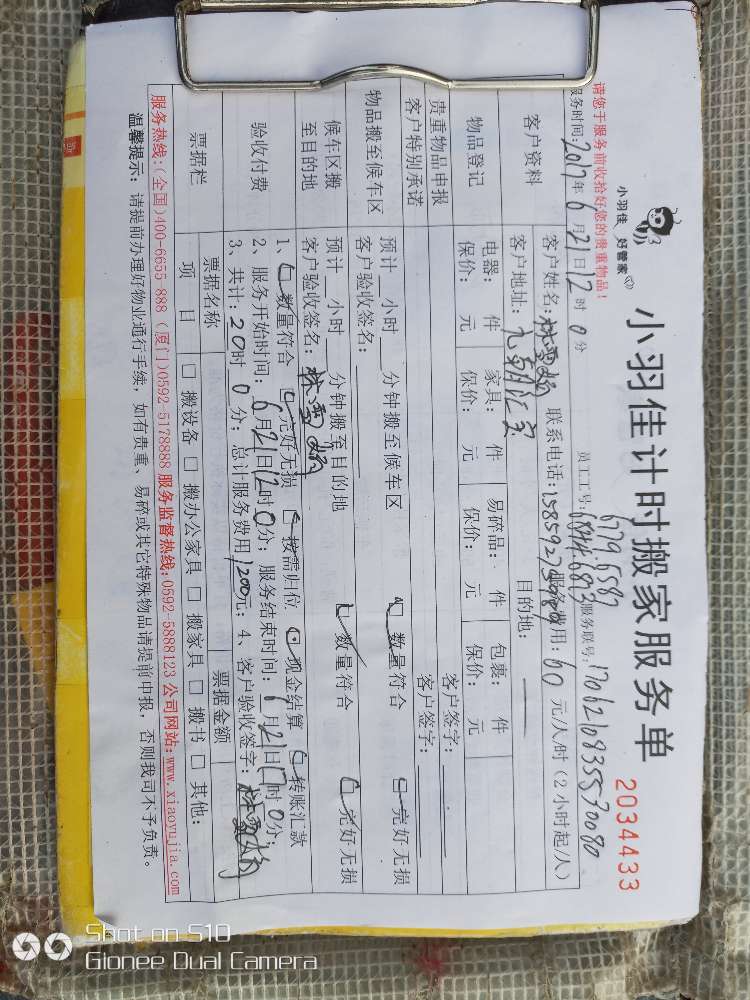 小羽佳计时搬家服务单
2034433
小羽佳 好管家
请您于服务前收拾好您的贵重物品！
员工工号：6779.6587
服务时间：2017年6月21日12时0分
服务联号：1706210835570080
客户资料
客户姓名： 联系电话： 服务费用：60元/人/时（2小时起/人）
客户地址： 目的地：
物品登记
电器： 件 家具： 件 易碎品： 件 包裹： 件
保价： 元 保价： 元 保价： 元 保价： 元
贵重物品申报 客户签字：
客户特别承诺 客户签字：
物品搬至候车区
预计 小时 分钟搬至候车区 数量符合 完好无损
客户验收签名：
候车区搬至目的地
预计 小时 分钟搬至目的地 数量符合 完好无损
客户验收签名：
验收付费
1、数量符合 完好无损 按需归位 现金结算 转账汇款
2、服务开始时间：6月21日12时0分；服务结束时间：6月21日17时0分；
3、共计：20时0分；总计服务费用1200元；4、客户验收签字：
票据栏
票据名称 票据金额
项目 □搬设备 □搬办公家具 □搬家具 □搬书 □其他：
服务热线：(全国)400-6655 888 (厦门)0592-5178888 服务监督热线：0592-5888123 公司网站：www.xiaoyujia.com
温馨提示：请提前办理好物业通行手续，如有贵重、易碎或其它特殊物品请提前申报，否则我司不予负责。
Shot on S10
Gionee Dual Camera